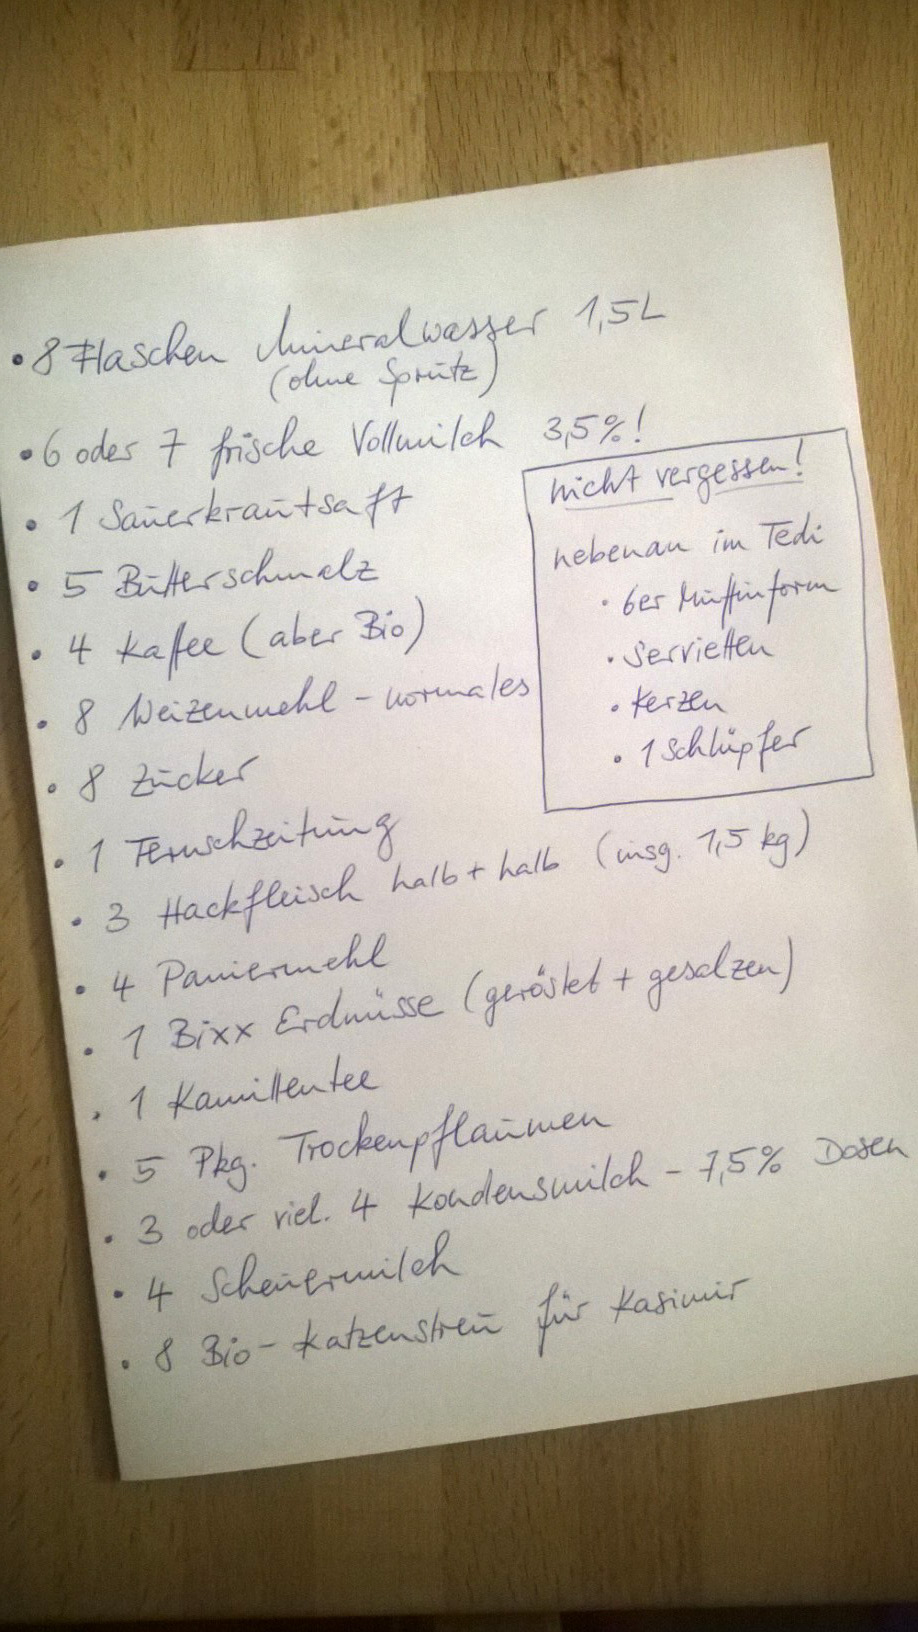 • 8 Flaschen Mineralwasser 1,5L
(ohne Sprutz)
• 6 oder 7 frische Vollmilch 3,5%!
• 1 Sauerkrautsaft
• 5 Butterschmalz
• 4 Kaffee (aber Bio)
• 8 Weizenmehl - normales
• 8 Zucker
• 1 Fernsehzeitung
• 3 Hackfleisch halb + halb (insg. 1,5 kg)
• 4 Paniermehl
• 1 Bixx Erdnüsse (geröstet + gesalzen)
• 1 Kamillentee
• 5 Pkg. Trockenpflaumen
• 3 oder viel. 4 Kondensmilch - 7,5% Dosen
• 4 Scheuermilch
• 8 Bio-Katzenstreu für Kasimir
nicht vergessen!
nebenan im Tedi
• 6er Muffinform
• Servietten
• Kerzen
• 1 Schlüpfer